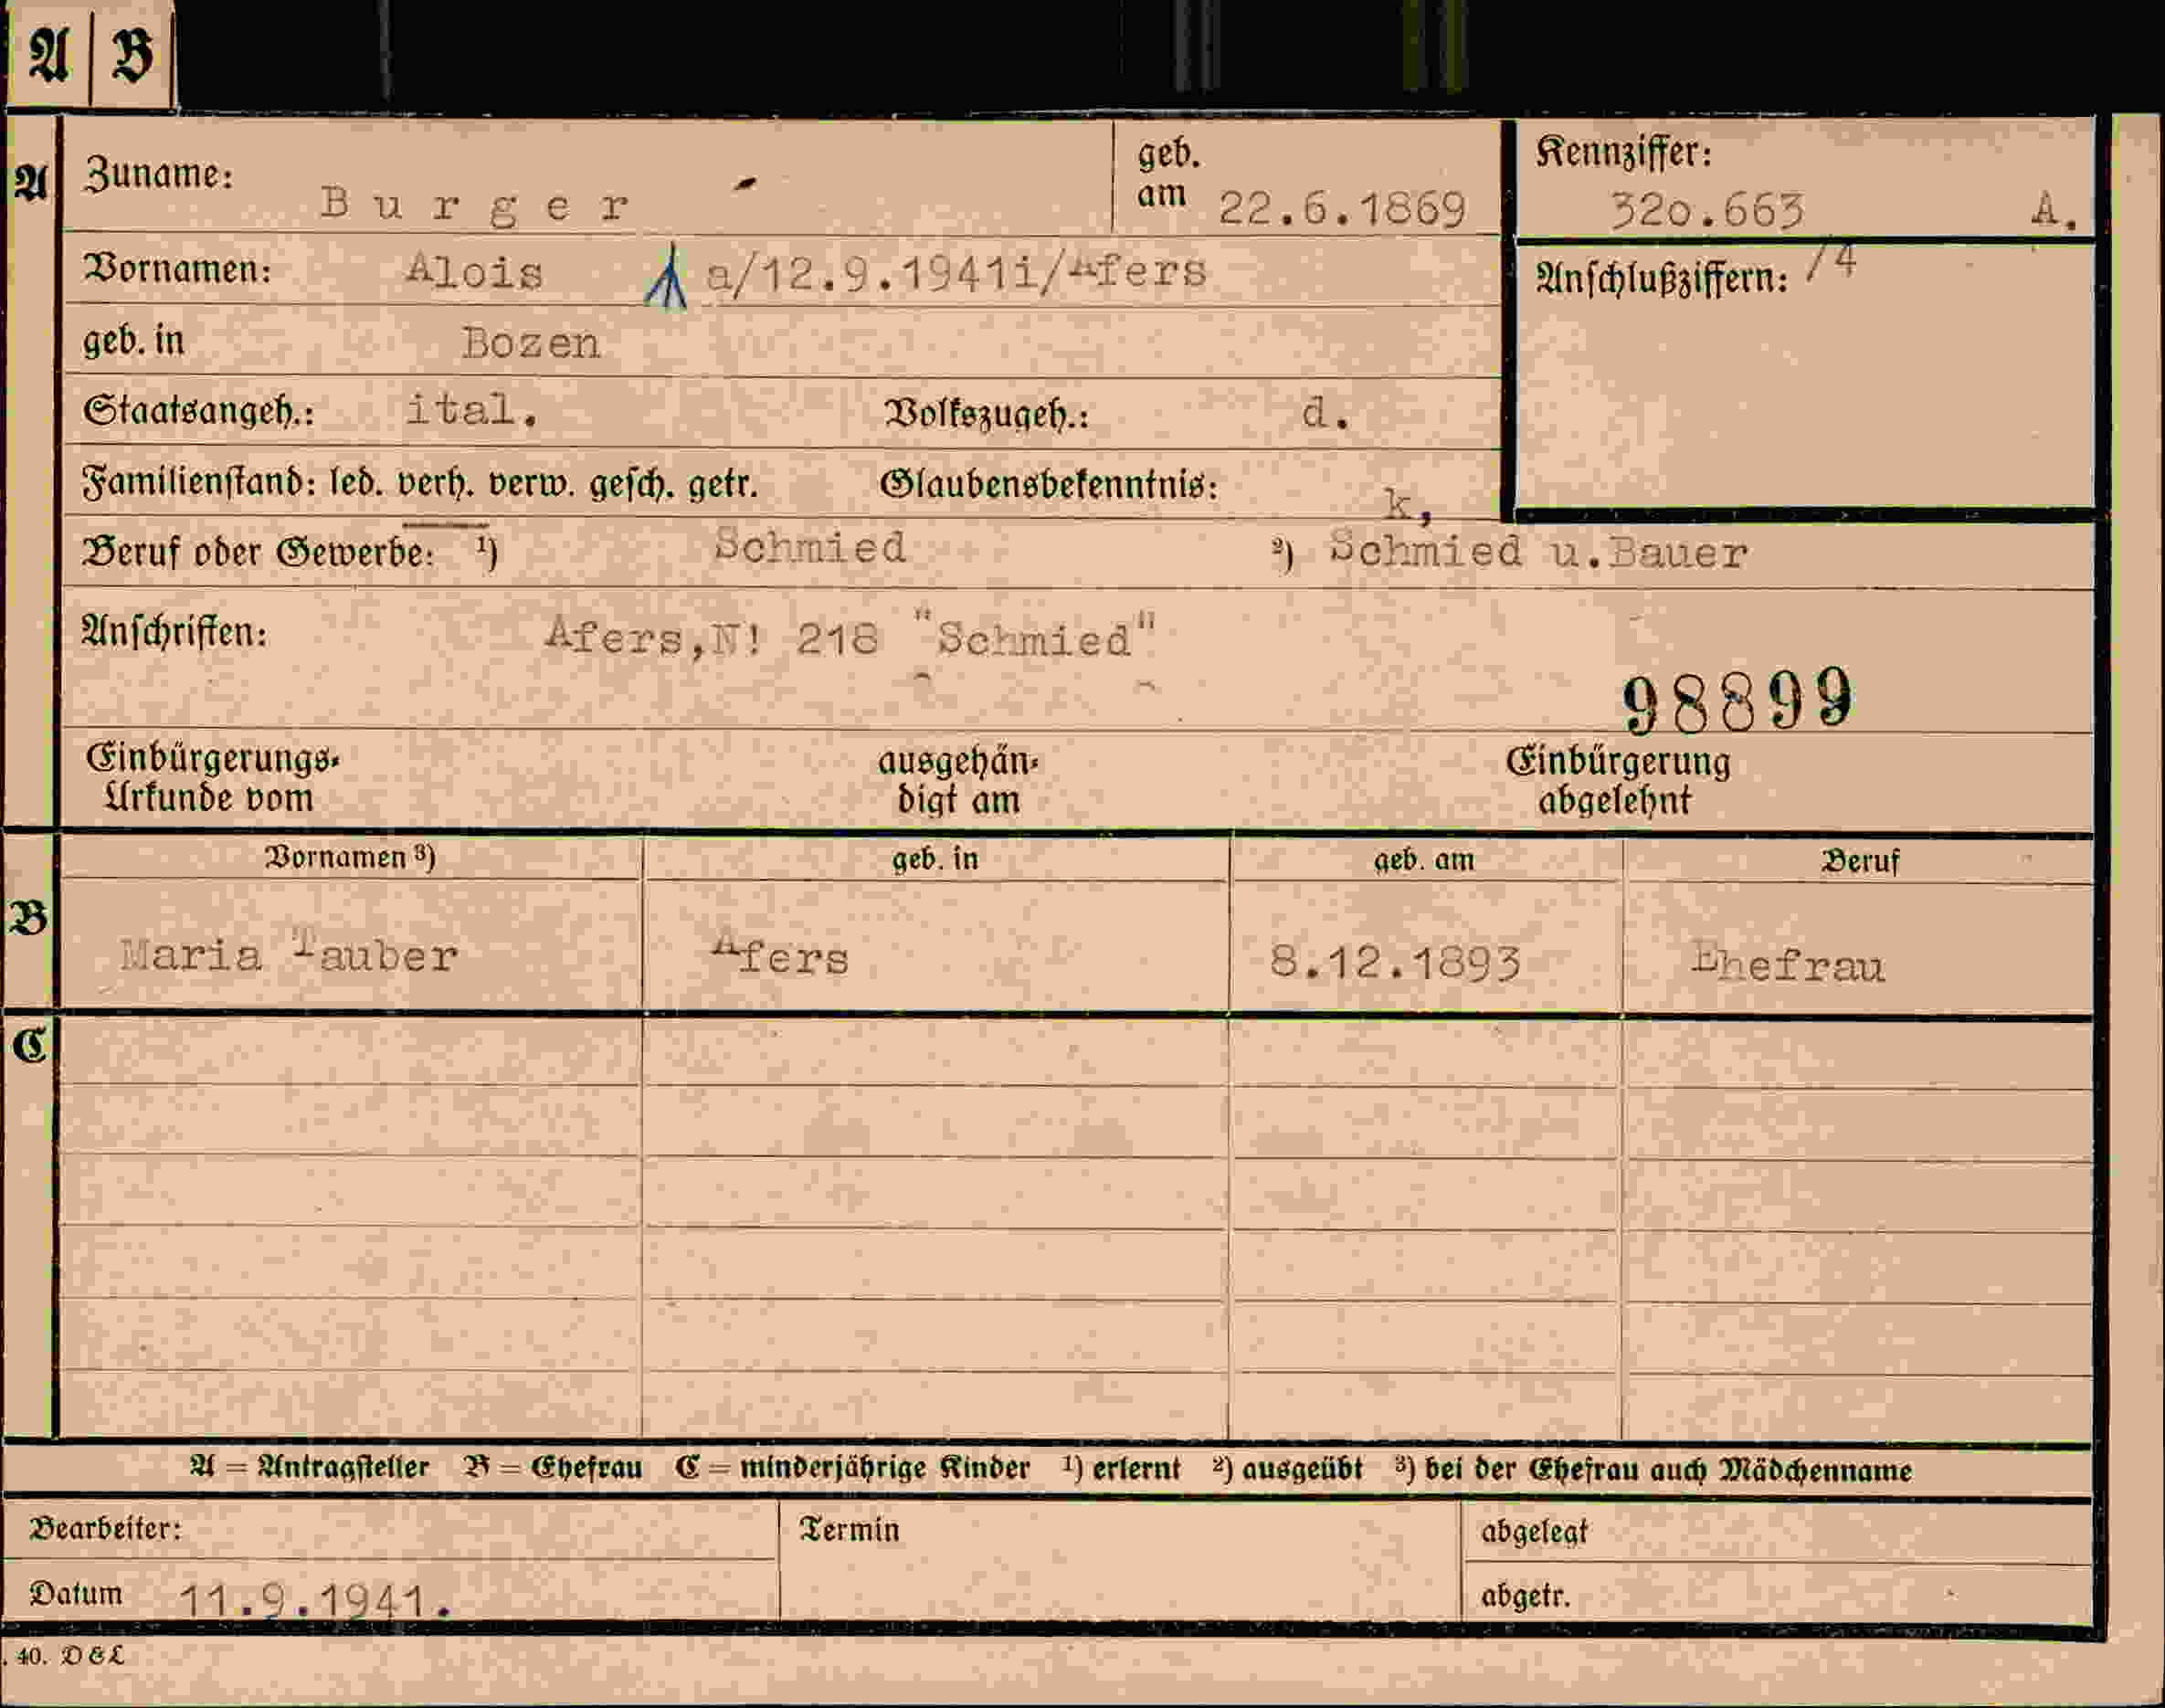 A B
A Zuname: Burger geb. am 22.6.1869 Kennziffer: 320.663 A.
Vornamen: Alois a/12.9.1941i/Afers Anschlußziffern: /4
geb. in Bozen
Staatsangeh.: ital. Volkszugeh.: d.
Familienstand: led. verh. verw. gesch. getr. Glaubensbekenntnis: k,
Beruf oder Gewerbe: ¹) Schmied ²) Schmied u.Bauer
Anschriften: Afers,N! 218 "Schmied"
98899
Einbürgerungs- ausgehän- Einbürgerung
Urkunde vom digt am abgelehnt
Vornamen ³) geb. in geb. am Beruf
B Maria Tauber Afers 8.12.1893 Ehefrau
C
A = Antragsteller B = Ehefrau C = minderjährige Kinder ¹) erlernt ²) ausgeübt ³) bei der Ehefrau auch Mädchenname
Bearbeiter: Termin abgelegt
Datum 11.9.1941. abgetr.
. 40. D & L